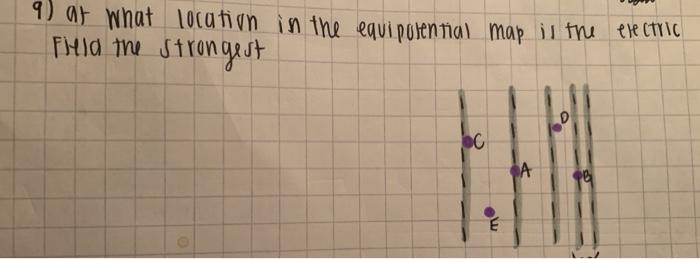 9) at what location in the equipotential map is the electric
Field the strongest
D
C
A
B
E